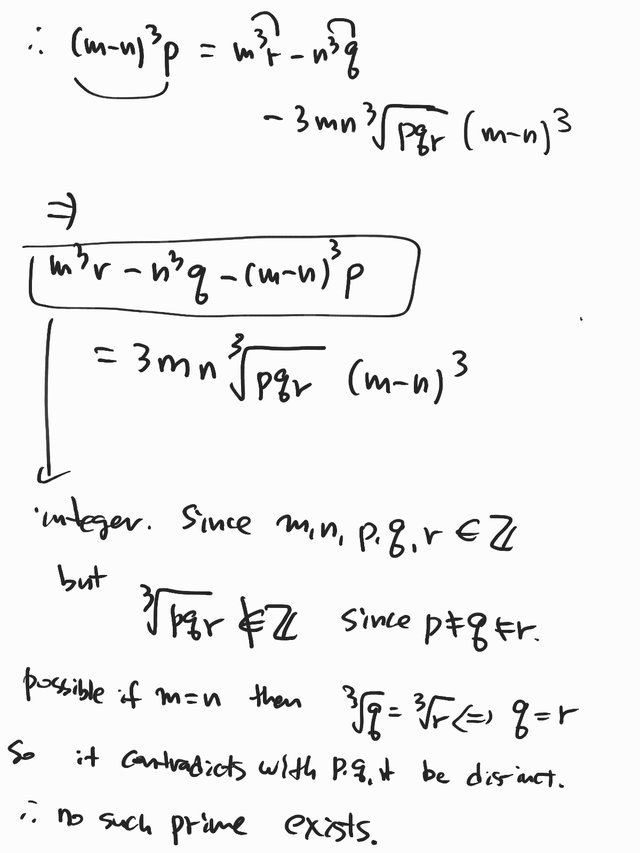 ∴ (m-n)³p = m³r - n³q
- 3mn ∛(pqr) (m-n)³
⇒
m³r - n³q - (m-n)³p
= 3mn ∛(pqr) (m-n)³
integer. Since m,n, p,q,r ∈ ℤ
but ∛(pqr) ∉ ℤ since p≠q≠r.
possible if m=n then ∛q = ∛r ⇔ q=r
So it contradicts with p.q, r be distinct.
∴ no such prime exists.